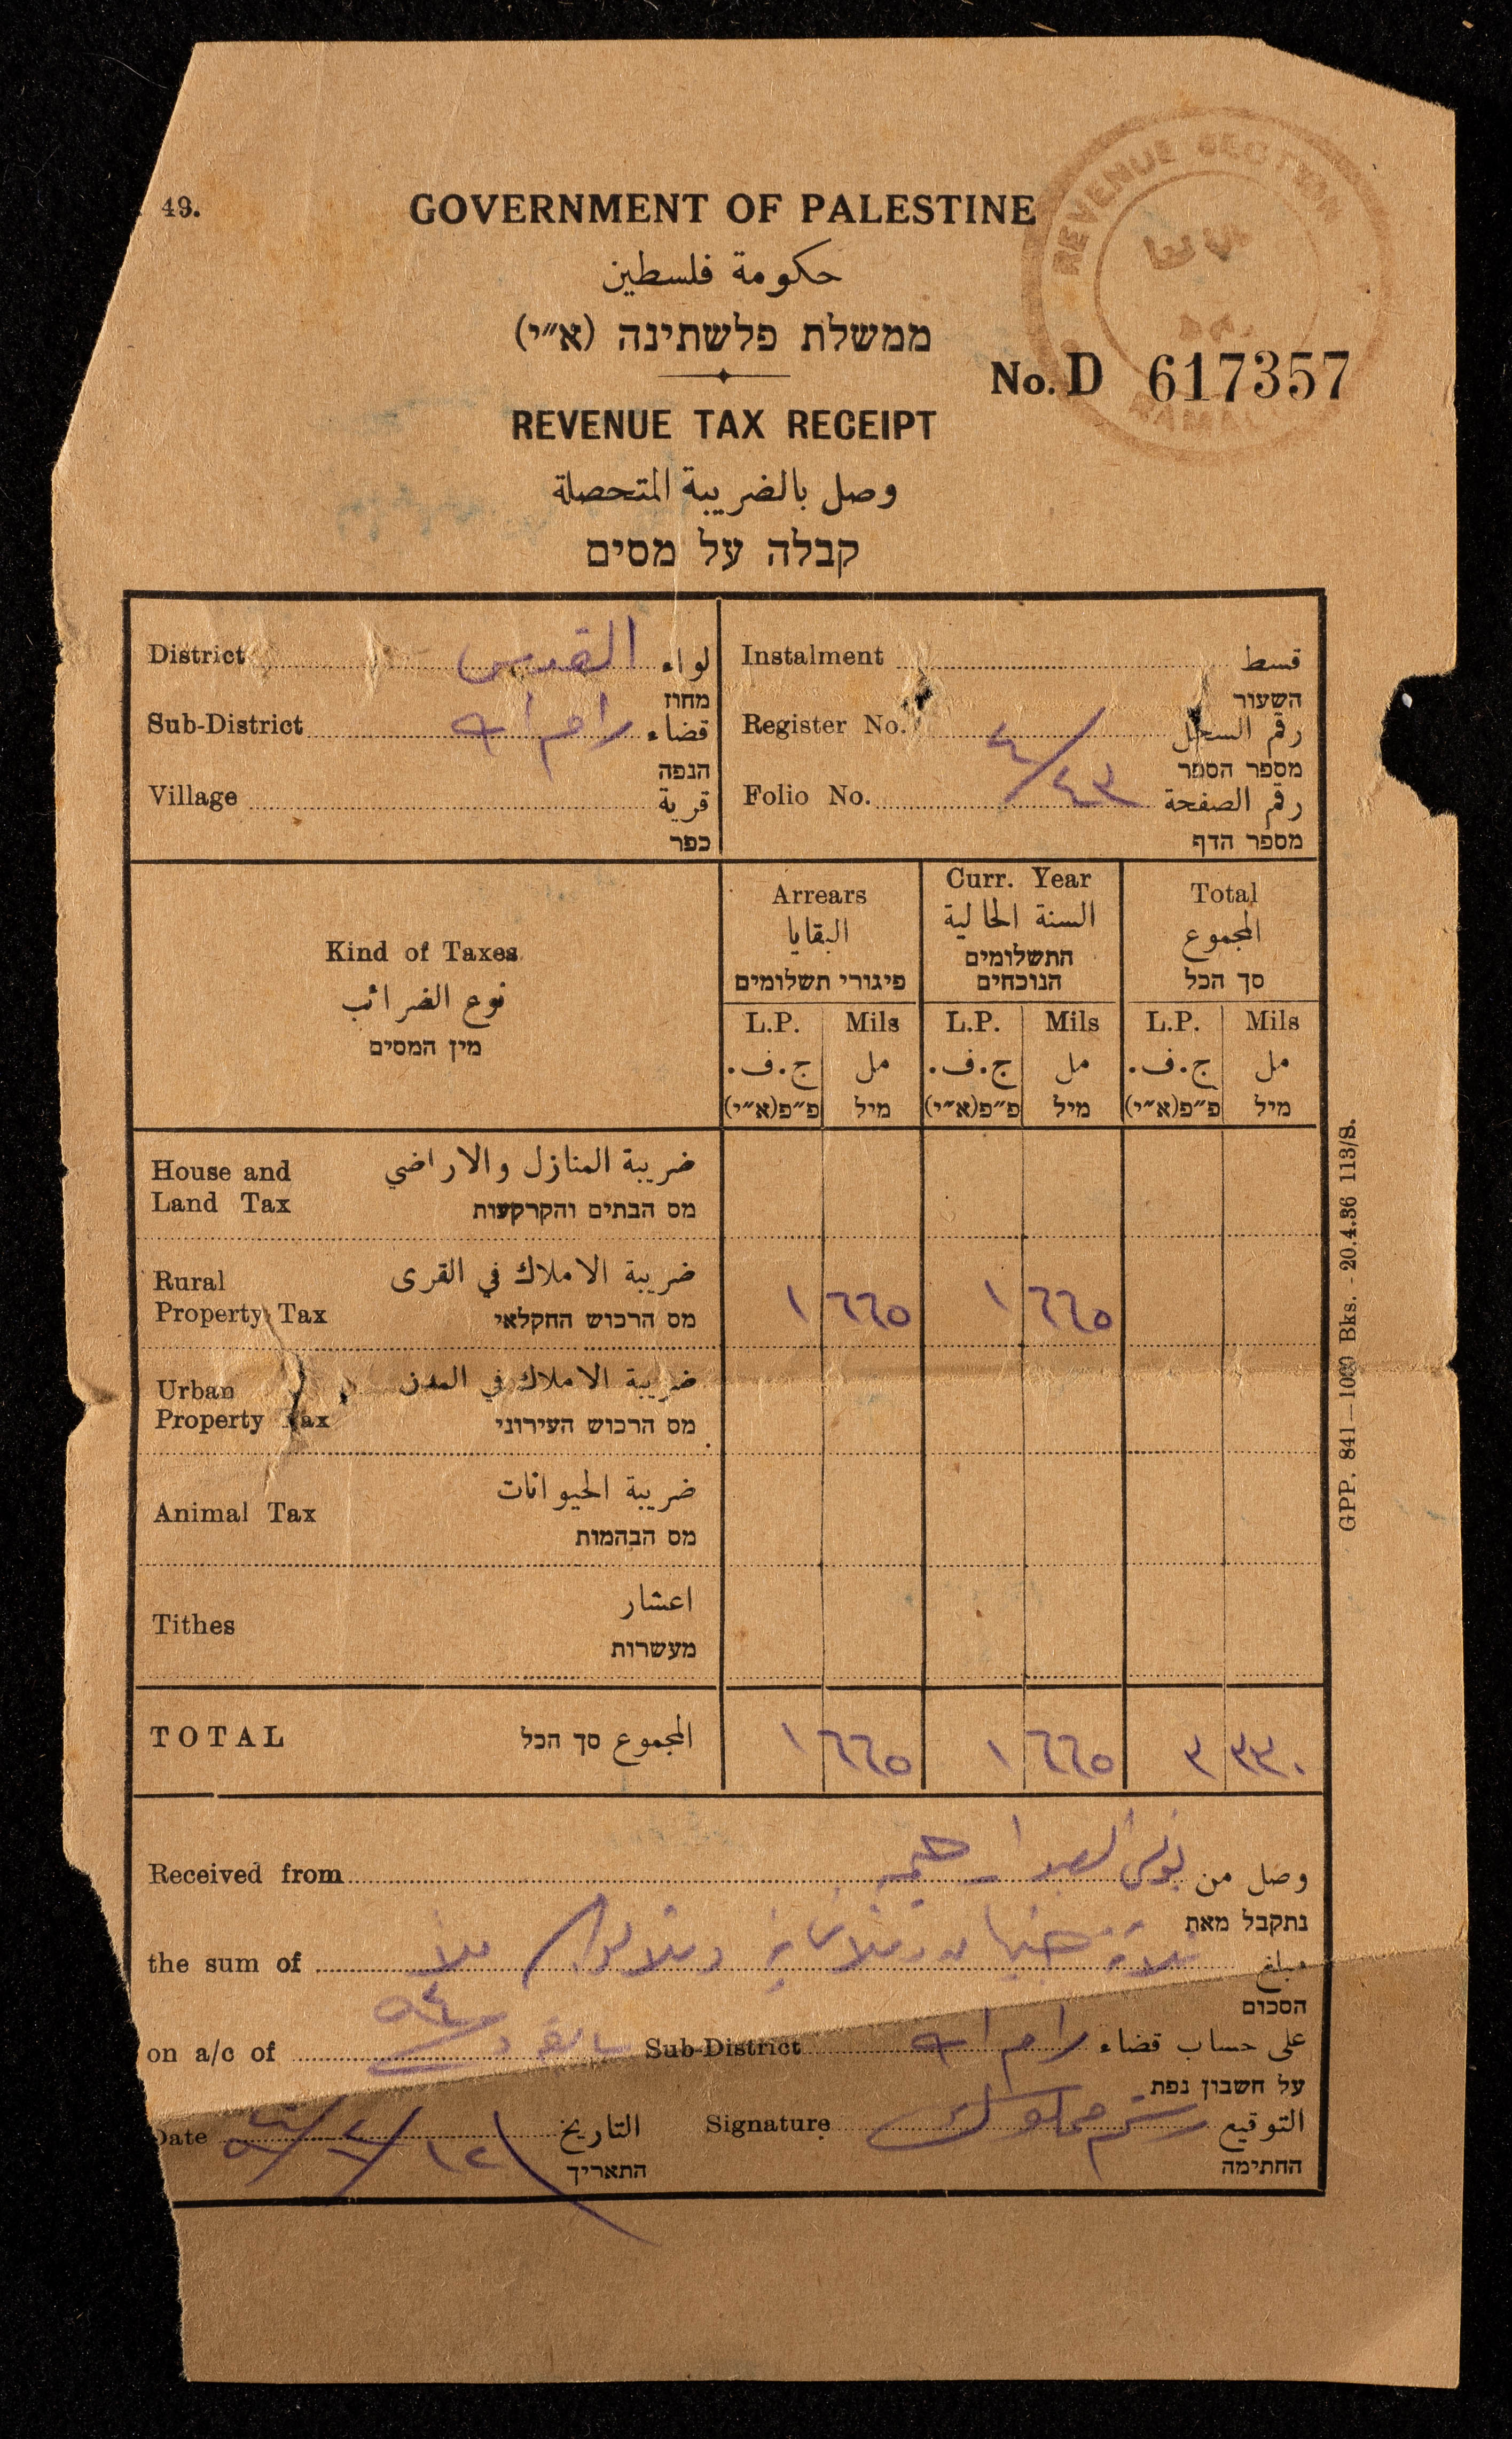 49.
REVENUE SECTION
GOVERNMENT OF PALESTINE
حكومة فلسطين
ממשלת פלשתינה (א״י)
No. D 617357
REVENUE TAX RECEIPT
وصل بالضريبة المتحصلة
קבלה על מסים
District القدس لواء
מחוז
Sub-District رام الله قضاء
הנפה
Village قرية
כפר
Instalment قسط
השעור
Register No. ٤/ رقم السجل
מספר הספר
Folio No. ٤٣ رقم الصفحة
מספר הדף
Kind of Taxes
نوع الضرائب
מין המסים
Arrears
البقايا
פיגורי תשלומים
Curr. Year
السنة الحالية
התשלומים
הנוכחים
Total
المجموع
סך הכל
L.P. Mils L.P. Mils L.P. Mils
ج.ف. مل ج.ف. مل ج.ف. مل
פ״פ(א״י) מיל פ״פ(א״י) מיל פ״פ(א״י) מיל
House and ضريبة المنازل والاراضي
Land Tax מס הבתים והקרקעות
Rural ضريبة الاملاك في القرى
Property Tax מס הרכוש החקלאי
١ ٦٦٥ ١ ٦٦٥
Urban ضريبة الاملاك في المدن
Property Tax מס הרכוש העירוני
Animal Tax ضريبة الحيوانات
מס הבהמות
Tithes اعشار
מעשרות
TOTAL المجموع סך הכל ١ ٦٦٥ ١ ٦٦٥ ٣ ٣٣٠
Received from وصل من
נתקבל מאת
the sum of ثلاثة جنيهات وثلاثماية وثلاثون ملا مبلغ
הסכום
on a/c of Sub-District رام الله على حساب قضاء
על חשבון נפת
Date التاريخ
התאריך
Signature التوقيع
החתימה
GPP. 841—1000 Bks. - 20.4.36 113/S.